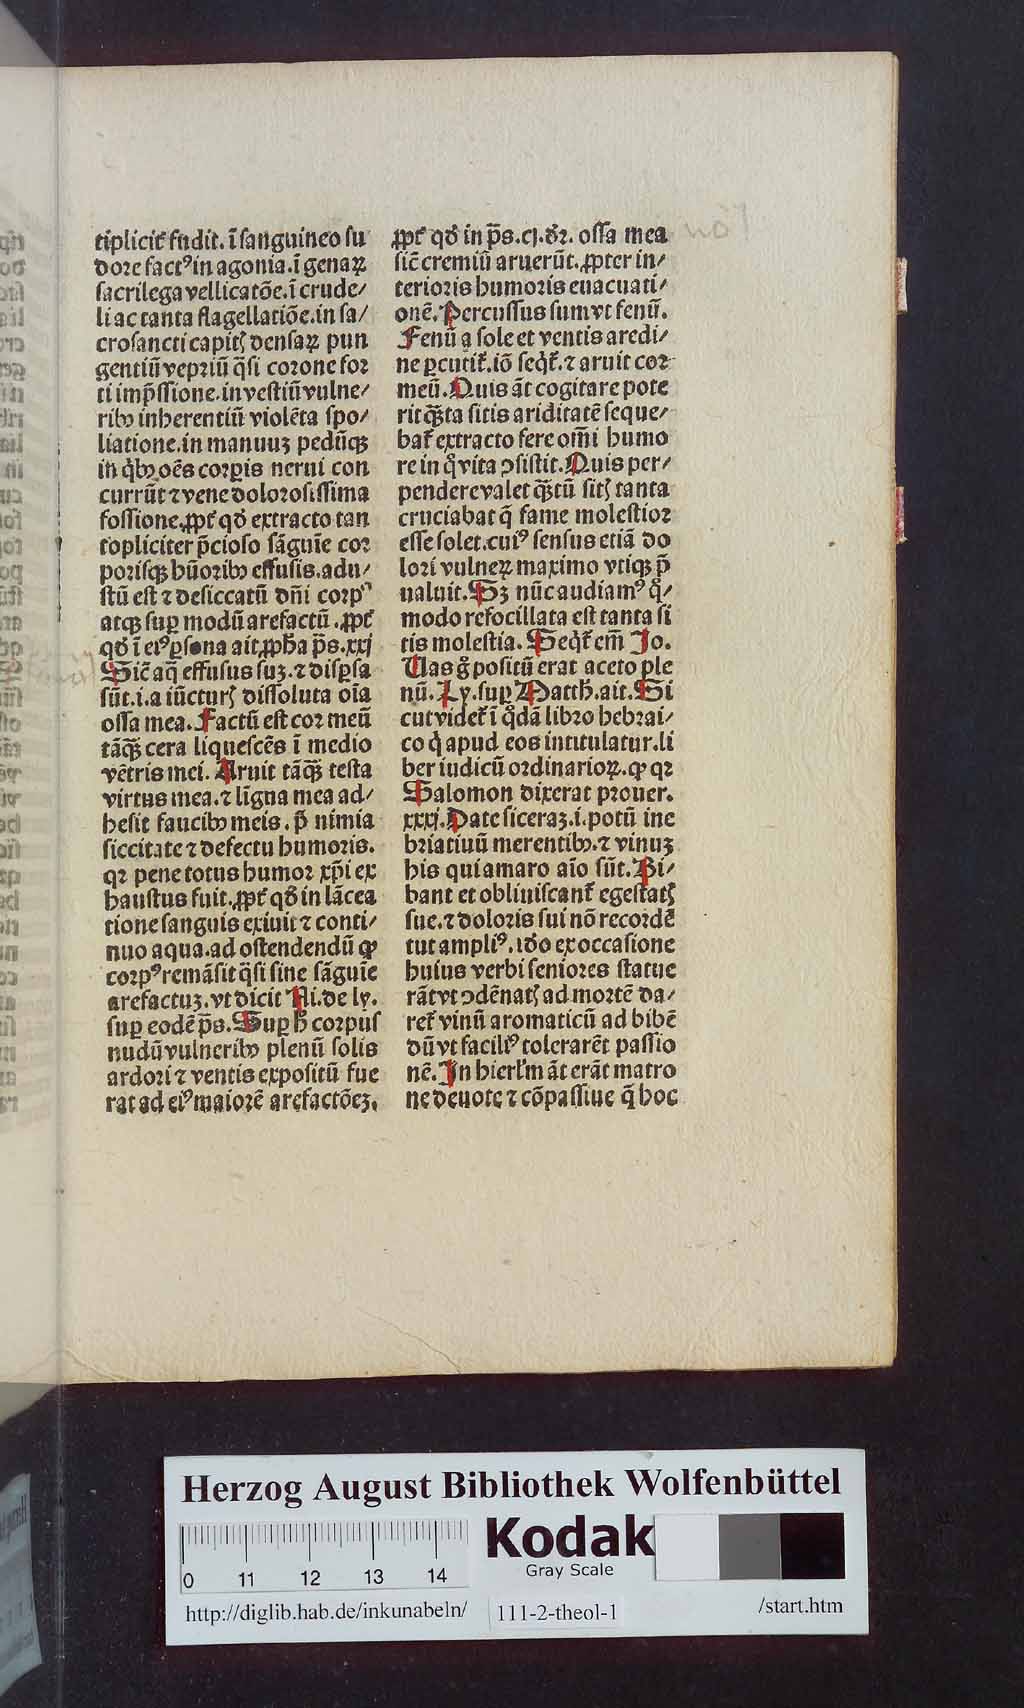 tiplicit̛ fudit. ĩ sanguineo su
dore fact⁹ in agonia. ĩ genaꝝ
sacrilega vellicatõe. ĩ crude/
li ac tanta flagellatiõe. in sa/
crosancti capitꝭ densaꝝ pun
gentiũ vepriũ q̃si corone for
ti imp̃ssione. in vestiũ vulne/
ribꝰ inherentiũ violẽta spo/
liatione. in manuuʒ pedũqʒ
in q̇bꝰ oẽs corꝑis nerui con
currũt ⁊ vene dolorosissima
fossione. ꝓpt̛ qď extracto tan
topliciter p̃cioso sãguĩe cor
porisqʒ hũoribꝰ effusis. adu/
stũ est ⁊ desiccatũ dñi corp⁹
atqʒ suꝑ modũ arefactũ. ꝓpt̛
qď ĩ ei⁹ ꝑsona ait ꝓph̃a p̃s. xxj
Sic̃ aq̃ effusus suʒ. ⁊ disꝑsa
sũt. i. a iũcturꝭ dissoluta oĩa
ossa mea. Factũ est cor meũ
tãqʒ̃ cera liquescẽs ĩ medio
vẽtris mei. Aruit tãqʒ̃ testa
virtus mea. ⁊ lĩgua mea ad/
hesit faucibꝰ meis. p̃ nimia
siccitate ⁊ defectu humoris.
qꝛ pene totus humor xp̃i ex
haustus fuit. ꝓpt̛ qď in lãcea
tione sanguis exiuit ⁊ conti/
nuo aqua. ad ostendendũ ꝙ
corp⁹ remãsit q̃si sine sãguĩe
arefactuʒ. vt dicit Ni. de ly.
suꝑ eodẽ p̃s. Suꝑ h̃ corpus
nudũ vulneribꝰ plenũ solis
ardori ⁊ ventis expositũ fue
rat ad ei⁹ maiorẽ arefactõeʒ.
ꝓpt̛ qď in p̃s. cj. dr̃. ossa mea
sic̃ cremiũ aruerũt. ꝓpter in/
terioris humoris euacuati/
onẽ. Percussus sum vt fenũ.
Fenũ a sole et ventis aredi/
ne ꝑcutit̛. iõ seq̇t̛. ⁊ aruit cor
meũ. Quis ãt cogitare pote
rit qʒ̃ta sitis ariditatẽ seque/
bat̛ extracto fere om̃i humo
re in q̊ vita ↄsistit. Quis per/
pendere valet qʒ̃tũ sitꝭ tanta
cruciabat q̃ fame molestior
esse solet. cui⁹ sensus etiã do
lori vulneꝝ maximo vtiqʒ p̃
ualuit. Sʒ nũc audiam⁹ q̊/
modo refocillata est tanta si
tis molestia. Seq̇t̛ em̃ Jo.
Uas g̊ positũ erat aceto ple
nũ. Ly. suꝑ Matth̃. ait. Si
cut videt̛ ĩ q̊dã libro hebrai/
co q̇ apud eos intitulatur. li
ber iudicũ ordinarioꝝ. ꝙ qꝛ
Salomon dixerat prouer.
xxxj. Date siceraʒ. i. potũ ine
briatiuũ merentibꝰ. ⁊ vinuʒ
his qui amaro aĩo sũt. Bi/
bant et obliuiscant̛ egestatꝭ
sue. ⁊ doloris sui nõ recordẽ
tut ampli⁹. iďo ex occasione
huius verbi seniores statue
rãt vt ↄdẽnatꝭ ad mortẽ da/
ret̛ vinũ aromaticũ ad bibẽ
dũ vt facili⁹ tolerarẽt passio
nẽ. In hierl̃m ãt erãt matro
ne deuote ⁊ cõpassiue q̃ hoc
Herzog August Bibliothek Wolfenbüttel
Kodak
Gray Scale
0 11 12 13 14
http://diglib.hab.de/inkunabeln/ 111-2-theol-1 /start.htm